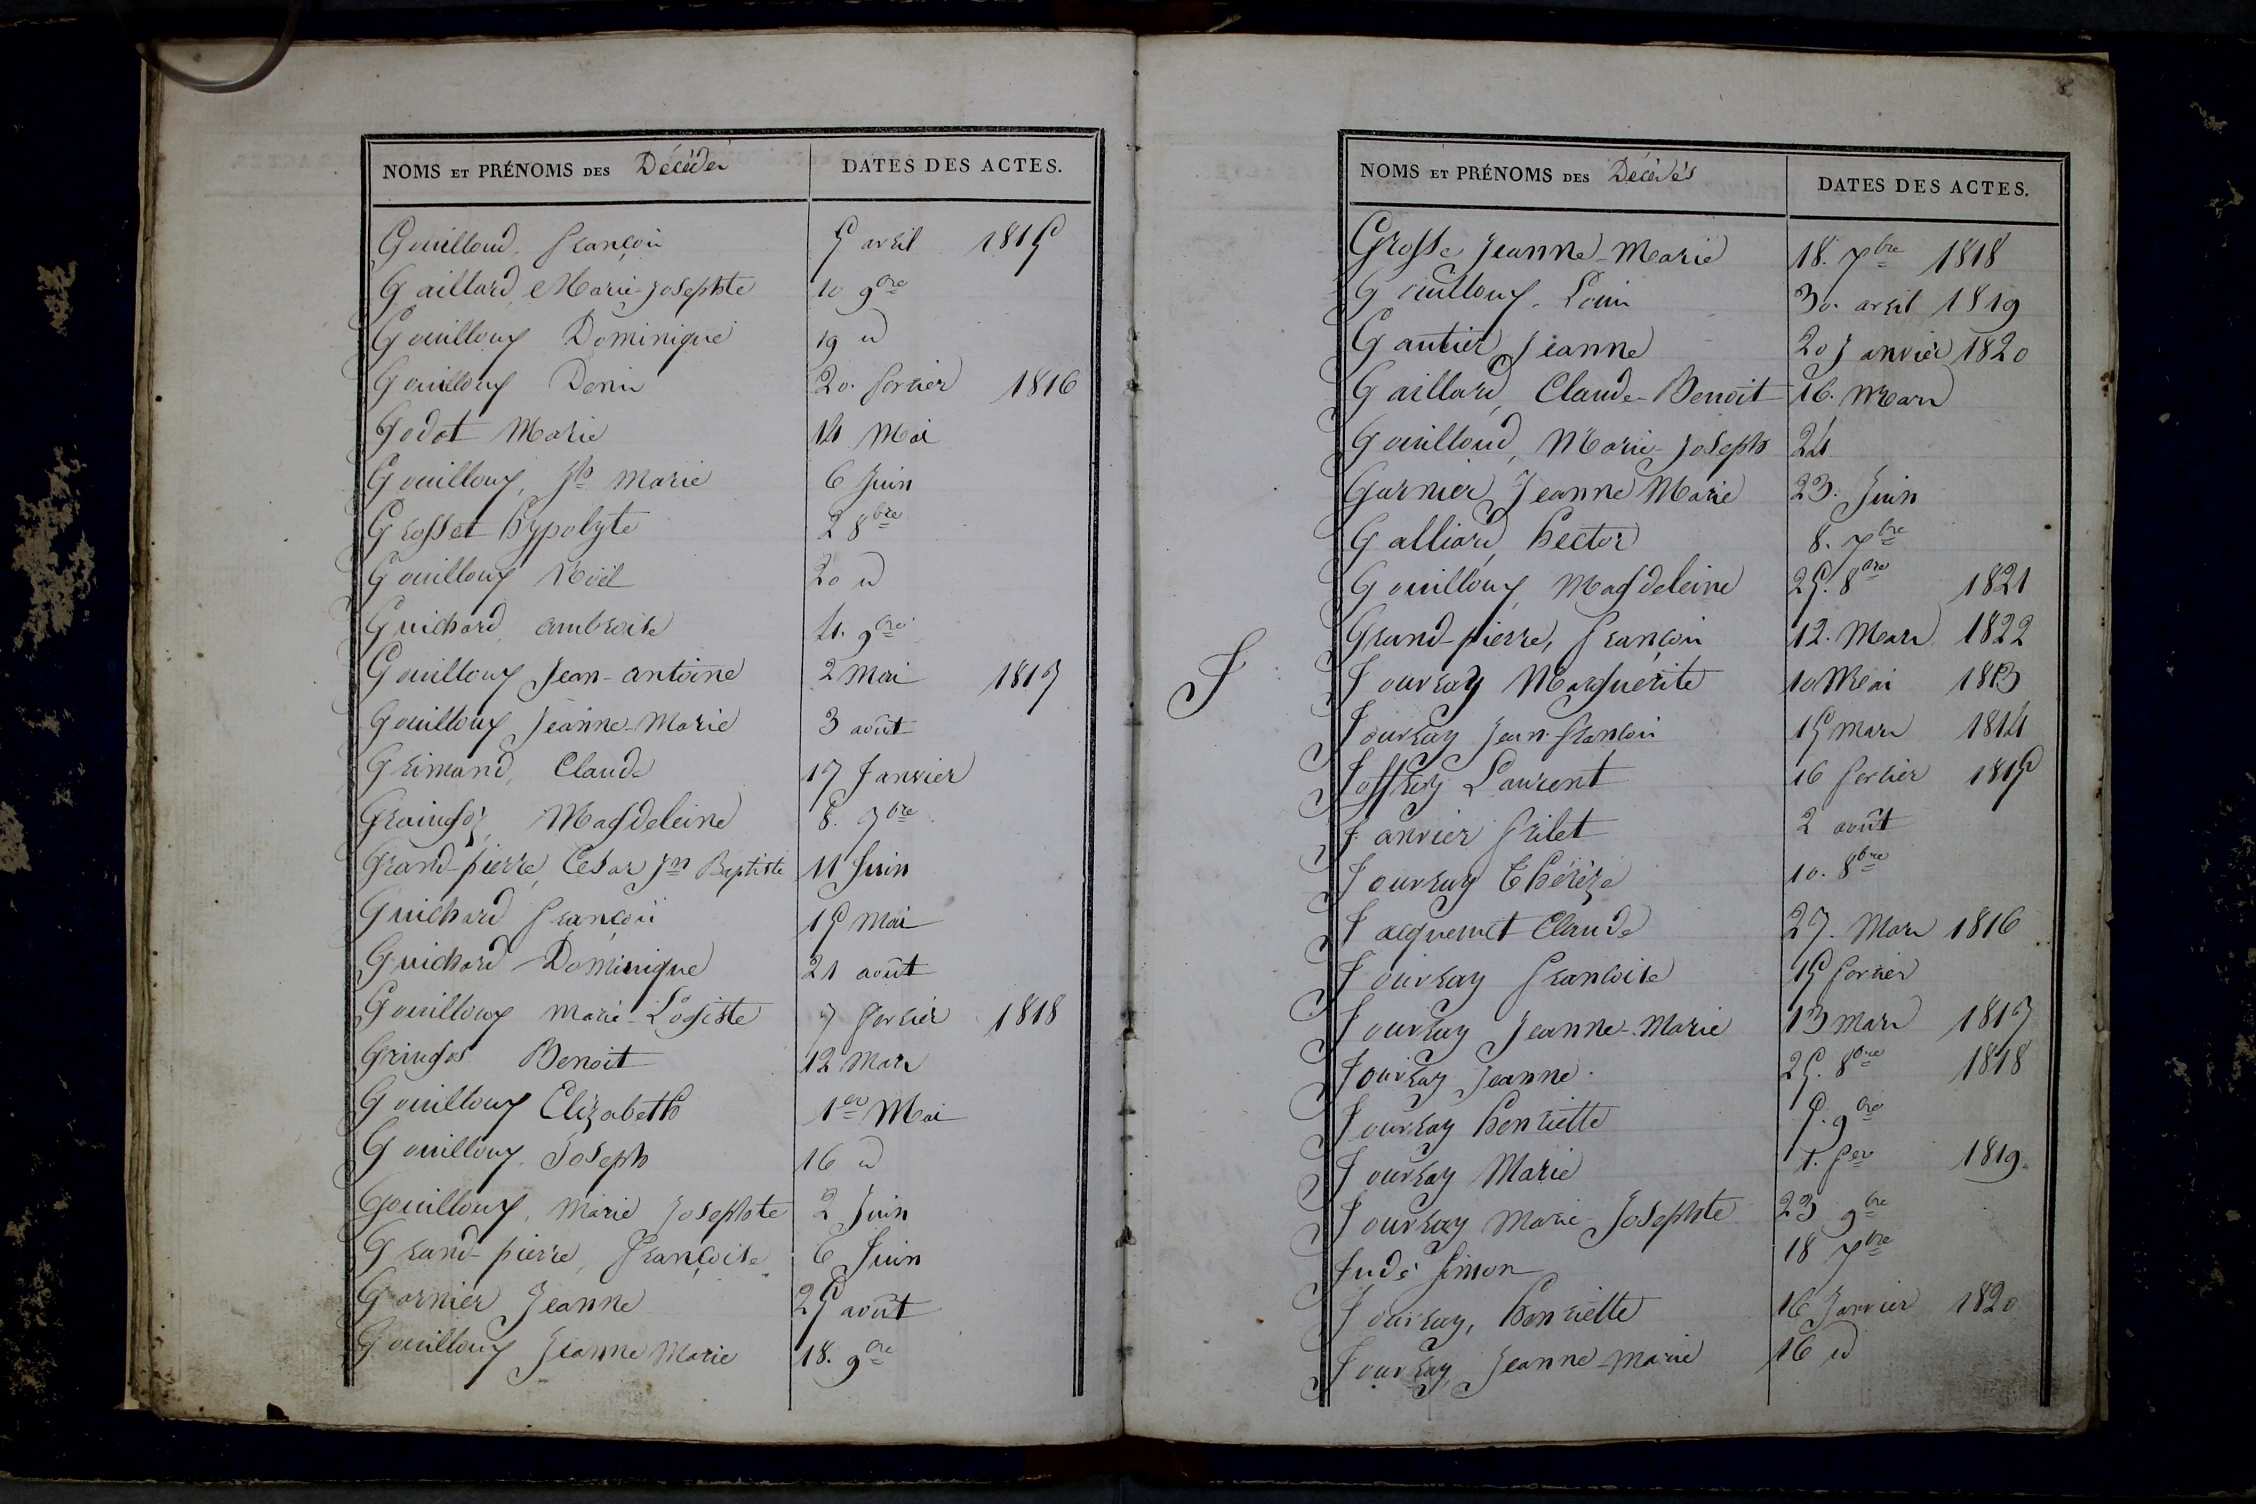 NOMS ET PRÉNOMS DES Décédés DATES DES ACTES.
Gouilloud François 5 avril 1815
Gaillard, Marie-Josephte 10 9bre
Gouilloux Dominique 19 id
Gouilloux Denis 20. fevrier 1816
Godot Marie 14 Mai
Gouilloux, Jh Marie 6 Juin
Grosset hypolyte 2 8bre
Gouilloux Noël 20 id
Guichard ambroise 4. 9bre
Gouilloux Jean-antoine 2 Mai 1817
Gouilloux Jeanne-Marie 3 août
Grimand, Claude 17 Janvier
Magdeleine 8. 7bre
Grand-pierre, Cesar Jn Baptiste 11 Juin
Guichard François 15 Mai
Guichard Dominique 21 août
Gouilloux Marie 7 fevrier 1818
Gringos Benoit 12 Mars
Gouilloux Elizabeth 1er Mai
Gouilloux Joseph 16 id
Gouilloux, Marie Josephte 2 Juin
Grand-pierre, Françoise 6 Juin
Garnier Jeanne 25 août
Gouilloux Jeanne Marie 18. 9bre
NOMS ET PRÉNOMS DES Décédés DATES DES ACTES.
Grosse Jeanne-Marie 18. 7bre 1818
Gouilloux. Louis 30. avril 1819
Gautier, Jeanne 20 Janvier 1820
Gaillard, Claude-Benoit 16. Mars
Gouilloud, Marie-Joseph 24
Garnier, Jeanne Marie 23. Juin
Galliard, hector 8. 7bre
Gouilloux Magdeleine 25. 8bre 1821
Grand-pierre, François 12. Mars 1822
J
Jouvray Marguérite 10 Mai 1813
Jouvray Jean-François 15 mars 1814
Joffrey Laurent 16 fevrier 1815
Janvier 2 août
Jouvray Thérèze 10. 8bre
Jacquemet Claude 27. Mars 1816
Jouvray Francoise 15 fevrier
Jouvray Jeanne-Marie 13 mars 1817
Jouvray Jeanne. 25. 8bre 1818
Jouvray henriette 5. 9bre
Jouvray Marie 1. fer 1819.
Jouvray Marie-Josephte 23 9bre
Judé Simon 18 7bre
Jouvray, henriette 16 Janvier 1820
Jouvray, Jeanne-Marie 16 id